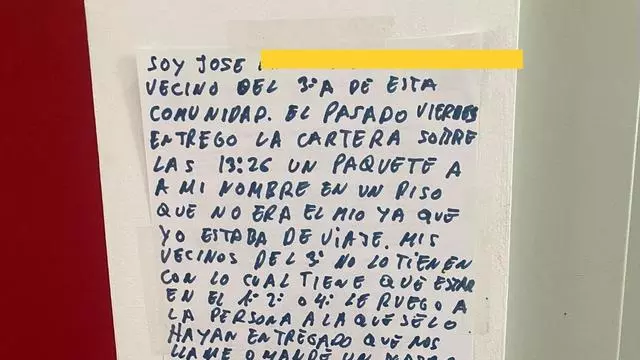 SOY JOSE
VECINO DEL 3ºA DE ESTA
COMUNIDAD. EL PASADO VIERNES
ENTREGO LA CARTERA SOBRE
LAS 13:26 UN PAQUETE A
A MI NOMBRE EN UN PISO
QUE NO ERA EL MIO YA QUE
YO ESTABA DE VIAJE. MIS
VECINOS DEL 3º NO LO TIENEN
CON LO CUAL TIENE QUE ESTAR
EN EL 1º 2º O 4º LE RUEGO A
LA PERSONA A LA QUE SE LO
HAYAN ENTREGADO QUE NOS
LLAME O MANDE UN